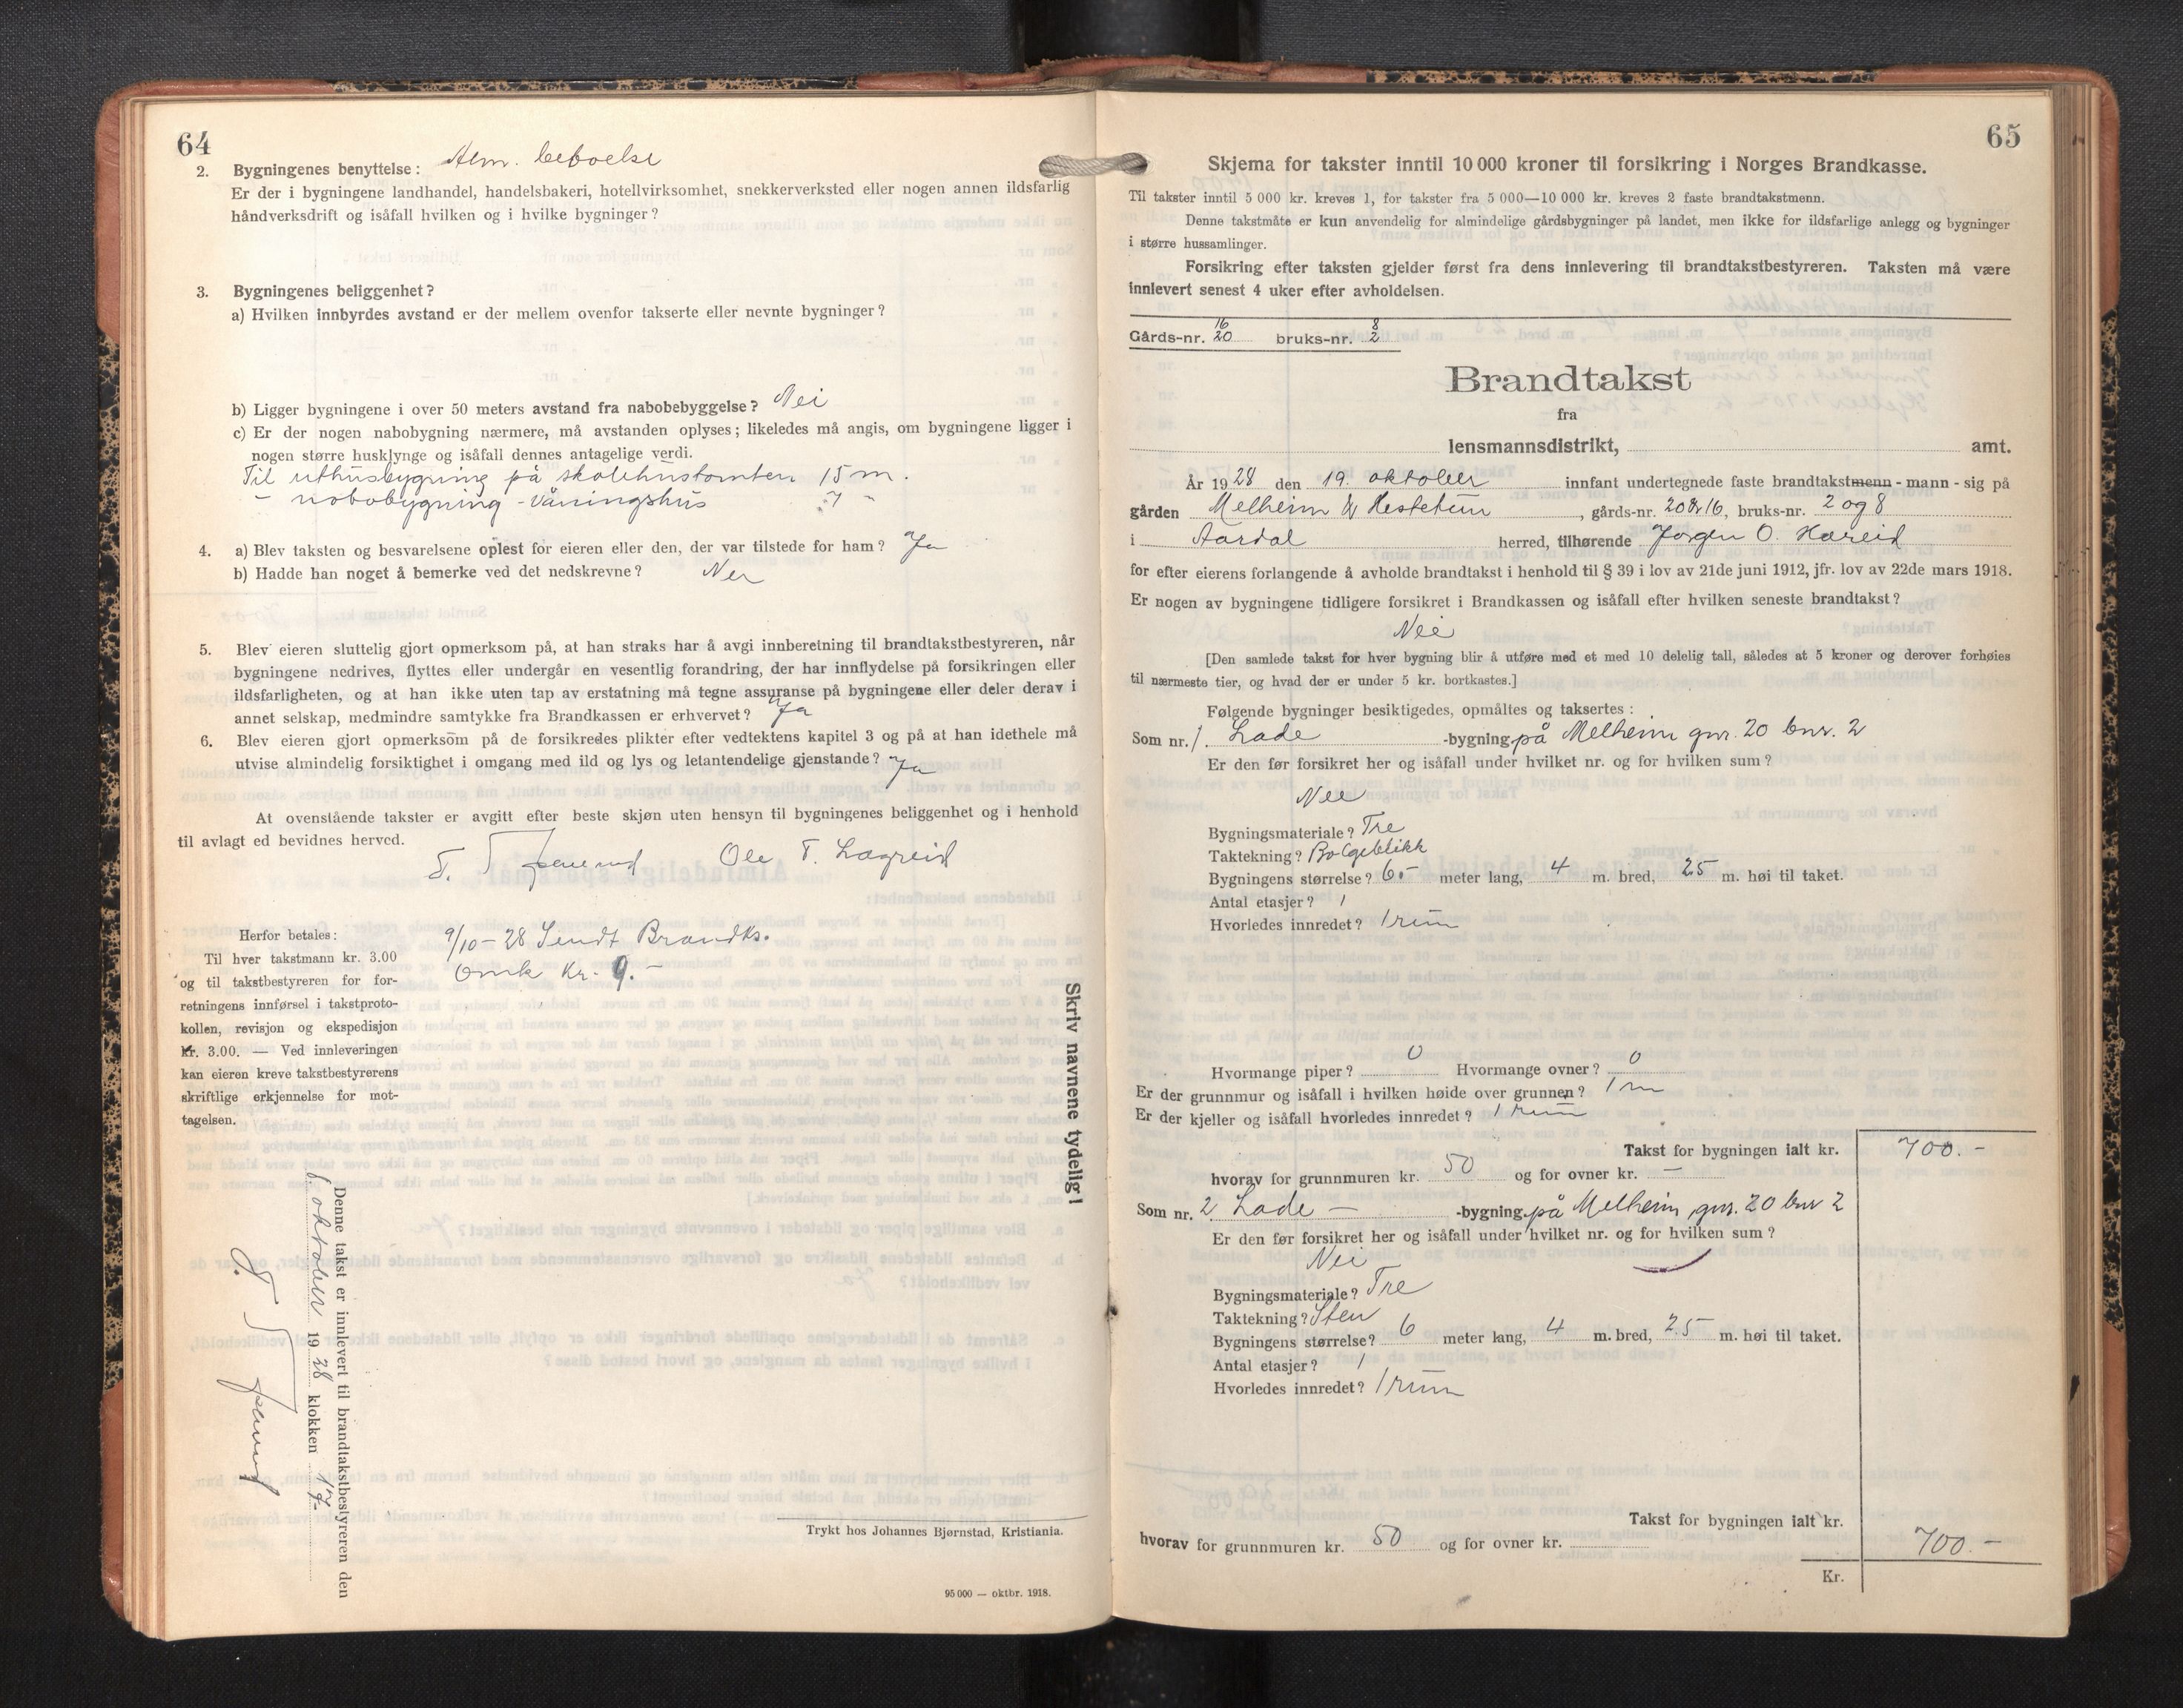 64
2. Bygningenes benyttelse: Alm. beboelse
Er der i bygningene landhandel, handelsbakeri, hotellvirksomhet, snekkerverksted eller nogen annen ildsfarlig
håndverksdrift og isåfall hvilken og i hvilke bygninger?
3. Bygningenes beliggenhet?
a) Hvilken innbyrdes avstand er der mellem ovenfor takserte eller nevnte bygninger?
b) Ligger bygningene i over 50 meters avstand fra nabobebyggelse? Nei
c) Er der nogen nabobygning nærmere, må avstanden oplyses; likeledes må angis, om bygningene ligger i
nogen større husklynge og isåfall dennes antagelige verdi.
Til uthusbygning på skolehustomten 15 m.
- nabobygning - våningshus 7 "
4. a) Blev taksten og besvarelsene oplest for eieren eller den, der var tilstede for ham? Ja
b) Hadde han noget å bemerke ved det nedskrevne? Nei
5. Blev eieren sluttelig gjort opmerksom på, at han straks har å avgi innberetning til brandtakstbestyreren, når
bygningene nedrives, flyttes eller undergår en vesentlig forandring, der har innflydelse på forsikringen eller
ildsfarligheten, og at han ikke uten tap av erstatning må tegne assuranse på bygningene eller deler derav i
annet selskap, medmindre samtykke fra Brandkassen er erhvervet? Ja
6. Blev eieren gjort opmerksom på de forsikredes plikter efter vedtektens kapitel 3 og på at han idethele må
utvise almindelig forsiktighet i omgang med ild og lys og letantendelige gjenstande? Ja
At ovenstående takster er avgitt efter beste skjøn uten hensyn til bygningenes beliggenhet og i henhold
til avlagt ed bevidnes herved.
Ole T. Lægreid
Herfor betales:
Til hver takstmann kr. 3.00
og til takstbestyreren for for-
retningens innførsel i takstproto-
kollen, revisjon og ekspedisjon
kr. 3.00. — Ved innleveringen
kan eieren kreve takstbestyrerens
skriftlige erkjennelse for mot-
tagelsen.
9/10 - 28 Sendt Brandks.
Omk kr. 9.-
Skriv navnene tydelig!
Denne takst er innlevert til brandtakstbestyreren den
6 oktober 1928 klokken 17
Trykt hos Johannes Bjørnstad, Kristiania.
95 000 — oktbr. 1918.
65
Skjema for takster inntil 10 000 kroner til forsikring i Norges Brandkasse.
Til takster inntil 5 000 kr. kreves 1, for takster fra 5 000—10 000 kr. kreves 2 faste brandtakstmenn.
Denne takstmåte er kun anvendelig for almindelige gårdsbygninger på landet, men ikke for ildsfarlige anlegg og bygninger
i større hussamlinger.
Forsikring efter taksten gjelder først fra dens innlevering til brandtakstbestyreren. Taksten må være
innlevert senest 4 uker efter avholdelsen.
16 8
Gårds-nr. 20 bruks-nr. 2
Brandtakst
fra
lensmannsdistrikt, amt.
År 1928 den 19. oktober innfant undertegnede faste brandtakstmenn - mann - sig på
gården Melheim & Hestetun, gårds-nr. 20 & 16, bruks-nr. 2 og 8
i Aardal herred, tilhørende Jørgen O. Hæreid
for efter eierens forlangende å avholde brandtakst i henhold til § 39 i lov av 21de juni 1912, jfr. lov av 22de mars 1918.
Er nogen av bygningene tidligere forsikret i Brandkassen og isåfall efter hvilken seneste brandtakst?
Nei
[Den samlede takst for hver bygning blir å utføre med et med 10 delelig tall, således at 5 kroner og derover forhøies
til nærmeste tier, og hvad der er under 5 kr. bortkastes.]
Følgende bygninger besiktigedes, opmåltes og taksertes:
Som nr. 1. Lade -bygning på Melheim gnr. 20 bnr. 2
Er den før forsikret her og isåfall under hvilket nr. og for hvilken sum?
Nei
Bygningsmateriale? Tre
Taktekning? Bølgeblikk
Bygningens størrelse? 6.- meter lang, 4 m. bred, 25 m. høi til taket.
Antal etasjer? 1
Hvorledes innredet? 1 rum
Hvormange piper? 0 Hvormange ovner? 0
Er der grunnmur og isåfall i hvilken høide over grunnen? 1 m
Er der kjeller og isåfall hvorledes innredet? 1 rum
Takst for bygningen ialt kr. 700.-
hvorav for grunnmuren kr. 50 og for ovner kr. —
Som nr. 2 Lade — -bygning på Melheim gnr. 20 bnr 2
Er den før forsikret her og isåfall under hvilket nr. og for hvilken sum?
Nei
Bygningsmateriale? Tre
Taktekning? Sten
Bygningens størrelse? 6 meter lang, 4 m. bred, 25 m. høi til taket.
Antal etasjer? 1
Hvorledes innredet? 1 rum
Takst for bygningen ialt kr.
hvorav for grunnmuren kr. 50 og for ovner kr. 700.-
Kr.